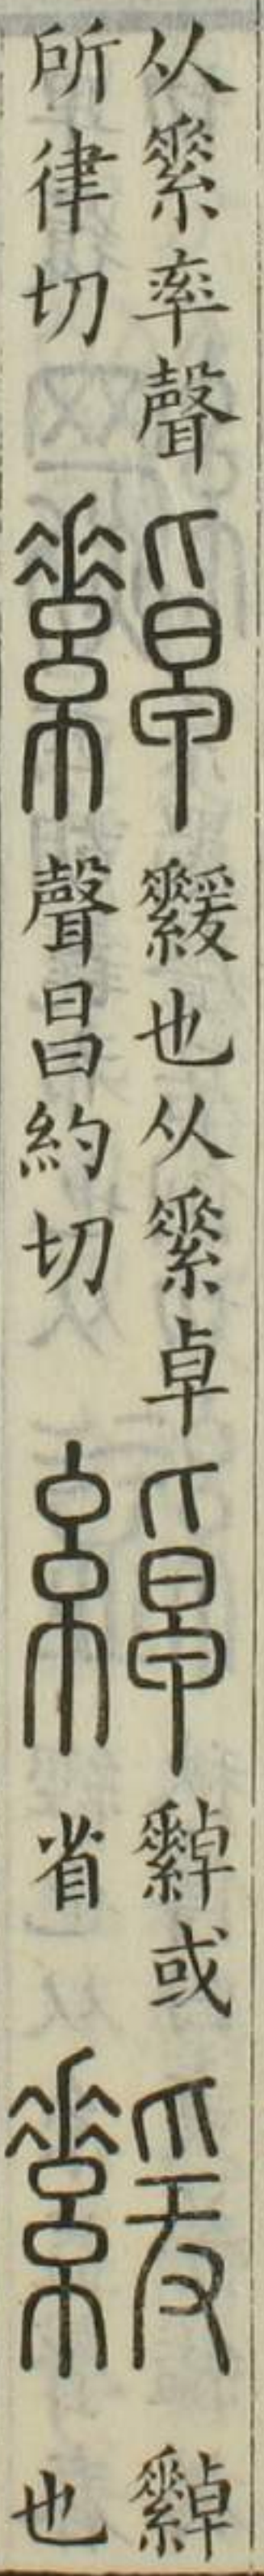 从素率聲
所律切
繛
𦇑也从素卓
聲昌約切
綽
繛或
省
𦇑
繛
也